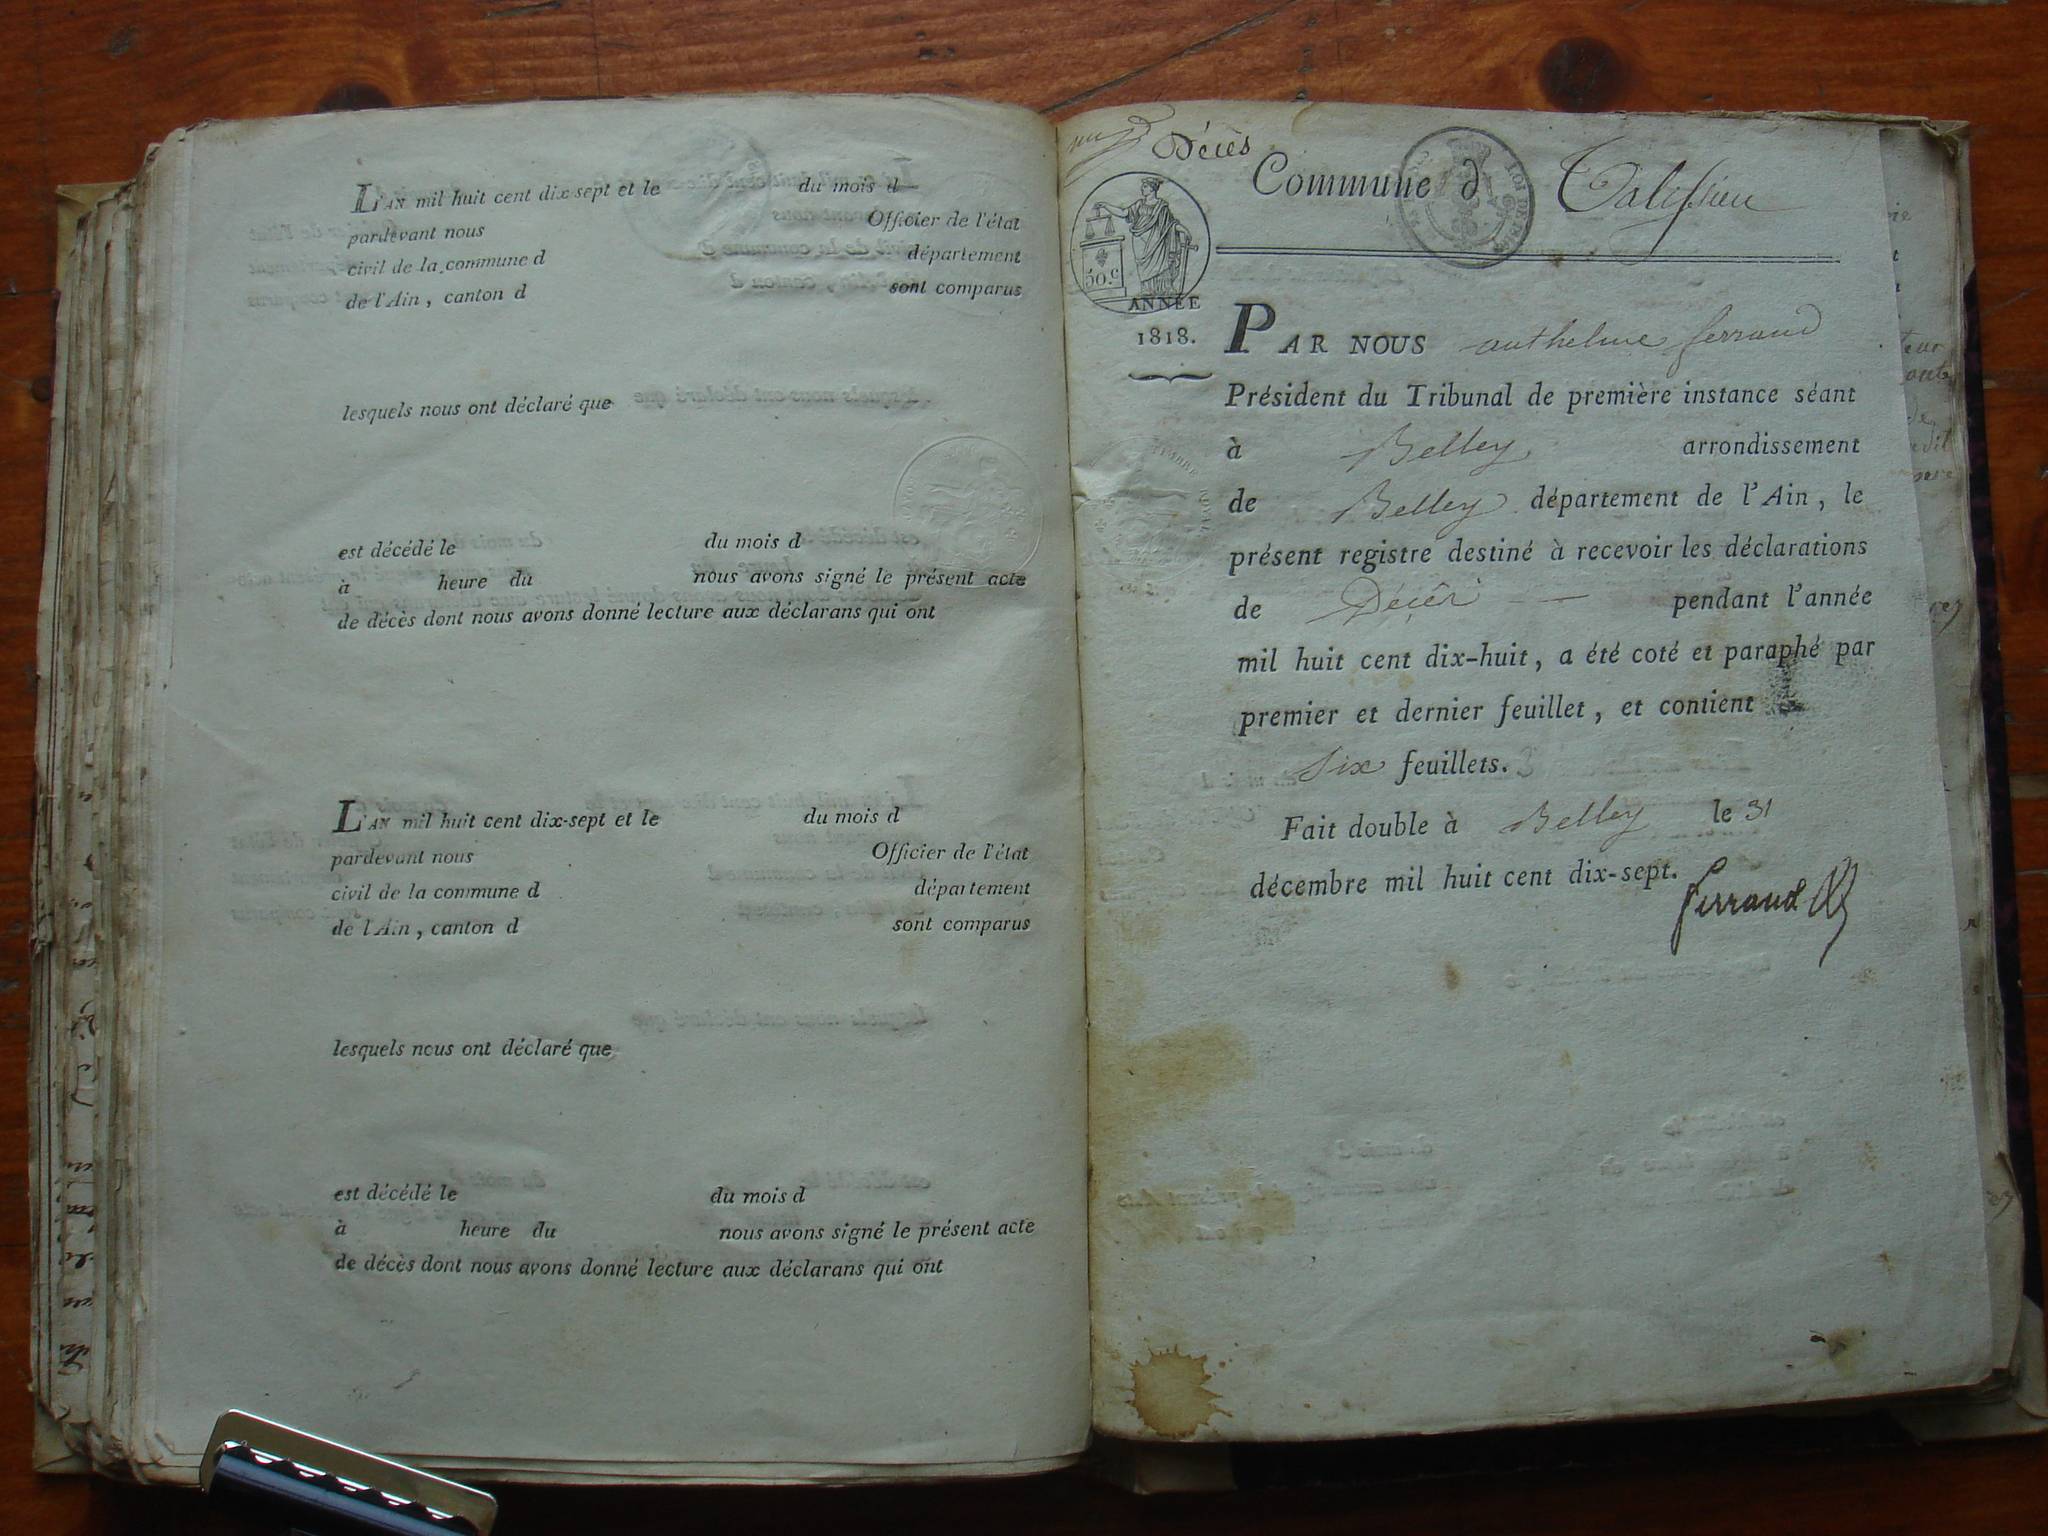 L'AN mil huit cent dix-sept et le du mois d
pardevant nous Officier de l'état
civil de la commune d département
de l'Ain, canton d sont comparus
lesquels nous ont déclaré que
est décédé le du mois d
à heure du nous avons signé le présent acte
de décès dont nous avons donné lecture aux déclarans qui ont
L'AN mil huit cent dix-sept et le du mois d
pardevant nous Officier de l'état
civil de la commune d département
de l'Ain, canton d sont comparus
lesquels nous ont déclaré que
est décédé le du mois d
à heure du nous avons signé le présent acte
de décès dont nous avons donné lecture aux déclarans qui ont
Décès
Commune d Talissieu
50.c
ANNÉE
1818.
PAR NOUS anthelme ferrand
Président du Tribunal de première instance séant
à Belley arrondissement
de Belley département de l'Ain, le
présent registre destiné à recevoir les déclarations
de Décès pendant l'année
mil huit cent dix-huit, a été coté et paraphé par
premier et dernier feuillet, et contient
six feuillets.
Fait double à Belley le 31
décembre mil huit cent dix-sept.
ferrand